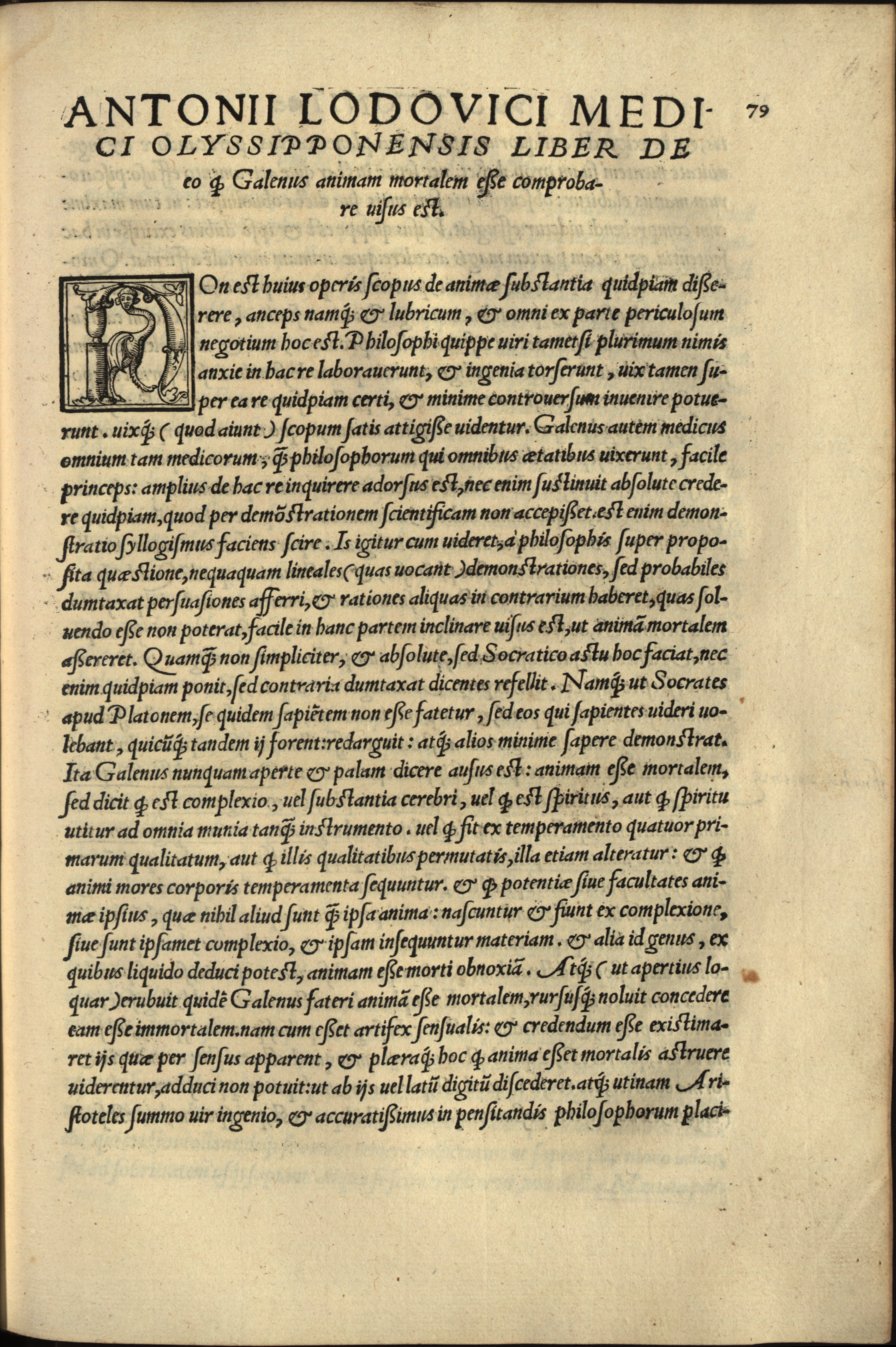 ANTONII LODOVICI MEDI- 79
CI OLYSSIPPONENSIS LIBER DE
eo ꝙ Galenus animam mortalem eſſe comproba-
re uiſus eſt.
NOn eſt huius operis ſcopus de animæ ſubſtantia quidpiam diſſe-
rere, anceps namq́ꝫ & lubricum, & omni ex parte periculoſum
negotium hoc eſt. Philoſophi quippe uiri tametſi plurimum nimis
anxie in hac re laborauerunt, & ingenia torſerunt, uix tamen ſu-
per ea re quidpiam certi, & minime controuerſum inuenire potue-
runt. uixq́ꝫ ( quod aiunt ) ſcopum ſatis attigiſſe uidentur. Galenus autem medicus
omnium tam medicorum, q̃ꝫ philoſophorum qui omnibus ætatibus uixerunt, facile
princeps: amplius de hac re inquirere adorſus eſt, nec enim ſuſtinuit abſolute crede-
re quidpiam, quod per demõſtrationem ſcientificam non accepiſſet. eſt enim demon-
ſtratio ſyllogiſmus faciens ſcire. Is igitur cum uideret, à philoſophis ſuper propo-
ſita quæſtione, nequaquam lineales (quas uocant) demonſtrationes, ſed probabiles
dumtaxat perſuaſiones afferri, & rationes aliquas in contrarium haberet, quas ſol-
uendo eſſe non poterat, facile in hanc partem inclinare uiſus eſt, ut animã mortalem
aſſereret. Quamq̃ꝫ non ſimpliciter, & abſolute, ſed Socratico aſtu hoc faciat, nec
enim quidpiam ponit, ſed contraria dumtaxat dicentes refellit. Namq́ꝫ ut Socrates
apud Platonem, ſe quidem ſapiẽtem non eſſe fatetur, ſed eos qui ſapientes uideri uo-
lebant, quicũq́ꝫ tandem ij forent: redarguit: atq́ꝫ alios minime ſapere demonſtrat.
Ita Galenus nunquam aperte & palam dicere auſus eſt: animam eſſe mortalem,
ſed dicit ꝙ eſt complexio, uel ſubſtantia cerebri, uel ꝙ eſt ſpiritus, aut ꝙ ſpiritu
utitur ad omnia munia tanq̃ꝫ inſtrumento. uel ꝙ fit ex temperamento quatuor pri-
marum qualitatum, aut ꝙ illis qualitatibus permutatis, illa etiam alteratur: & ꝙ
animi mores corporis temperamenta ſequuntur. & ꝙ potentiæ ſiue facultates ani-
mæ ipſius, quæ nihil aliud ſunt q̃ꝫ ipſa anima: naſcuntur & fiunt ex complexione,
ſiue ſunt ipſamet complexio, & ipſam inſequuntur materiam. & alia id genus, ex
quibus liquido deduci poteſt, animam eſſe morti obnoxiã. Atq́ꝫ ( ut apertius lo-
quar) erubuit quidẽ Galenus fateri animã eſſe mortalem, rurſuſq́ꝫ noluit concedere
eam eſſe immortalem. nam cum eſſet artifex ſenſualis: & credendum eſſe exiſtima-
ret ijs quæ per ſenſus apparent, & plæraq́ꝫ hoc ꝙ anima eſſet mortalis aſtruere
uiderentur, adduci non potuit: ut ab ijs uel latũ digitũ diſcederet. atq́ꝫ utinam Ari-
ſtoteles ſummo uir ingenio, & accuratiſſimus in penſitandis philoſophorum placi-